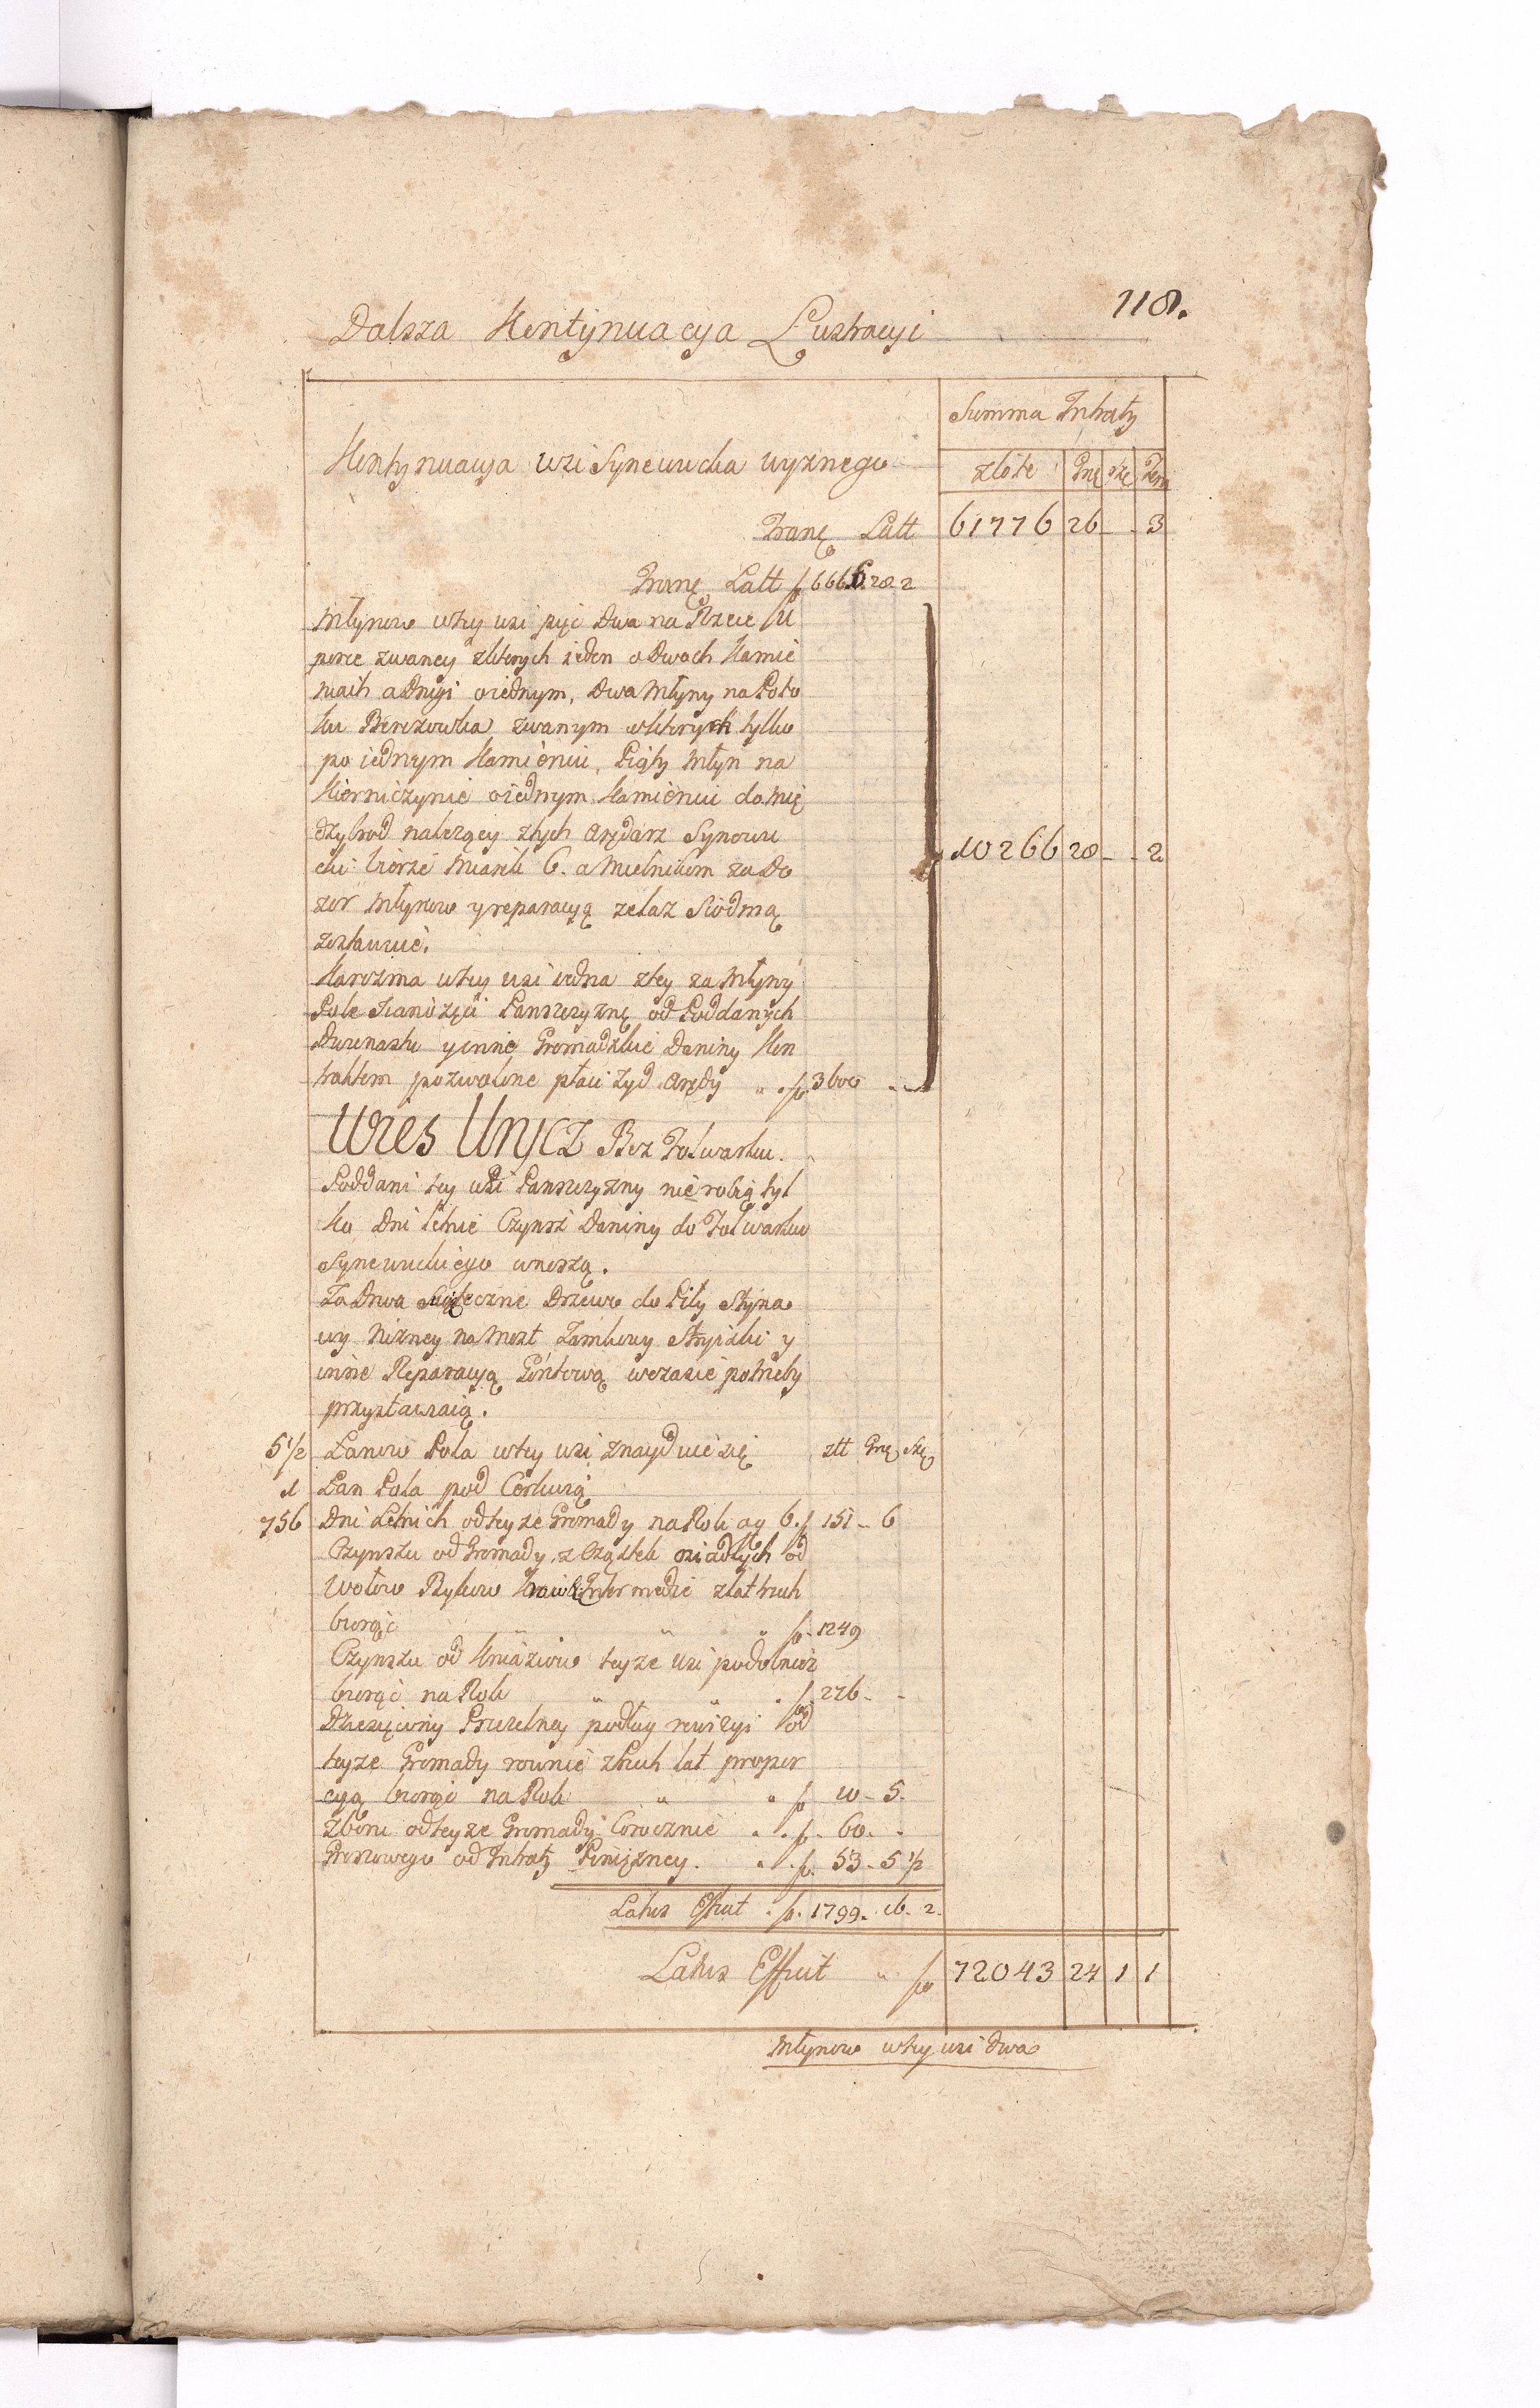 118.
Dalsza Kontynuacya Lustracyi
Summa Intraty
Kontynuacya wsi Synewucka wyznego
złote Grę szę
Tranę Latt 61776 26 - - 3
Tranę Latt f 6666. 28. 2
Młynow wtey wsi pięć Dwa na Rzece U
porze zwaney zktorych ieden o Dwoch Kamie
niach a Drugi o iednym, Dwa Młyny na Poto
ku Berezowka zwanym o ktorych tylko
po iednym Kamieniu, Piąty Młyn na
Kierniczynie o iednym Kamieniu do Mię
dzybrod należący ztych Arędarz Synowu
cki bierze Miarek 6. a Mielnikom za Do
zor Młynow y reparacyą zelaz Siodmą
zostawuie.
10266 28 - - 2
Karczma wtey wsi iedna ztey za Młyny
Pole Sianożęci Panszczyznę od Poddanych
Dwunastu y inne Gromadzkie Daniny Kon
traktem pozwolone płaci Zyd Arędy " . f. 3600 - -
Wies Unycz Bez Folwarku.
Poddani tey wsi Panszczyzny nie robią tyl
ko Dni letnie Czynsz Daniny do Folwarku
Synewuckiego wnoszą.
Za Drwa Drzewo do Piły Styna
wy Nizney na Most Zamkowy Stryiski y
inne Reparacyą Gontową wczasie potrzeby
przystawiaią.
5 1/2 Łanow Pola wtey wsi znayduie się złt Grę szę
1 Łan Pola pod Cerkwią
756 Dni Letnich od teyze Gromady na Rok ag 6. f 151 - 6
Czynszu od Gromady z Cząstek osiadłych od
Wołow Bykow Intermedie zlat trzech
biorąc " " f. 1249
Czynszu od Kniaziow teyze wsi podobniez
biorąc na Rok " " . f 276 - -
Dziesięciny Pszczelney podług rewizyi od
teyze Gromady rownie ztrzech lat propor
cyą biorąc na Rok " " f 10 - 5.
Zboru od teyze Gromady Corocznie . . f. 60. -
Groszowego od Intraty Pieniężney. " . f. 53 - 5 1/2
Latus Effcit . f. 1799. 16. 2.
Latus Effcit " f 72043 24 1 1
Młynow wtey wsi dwa